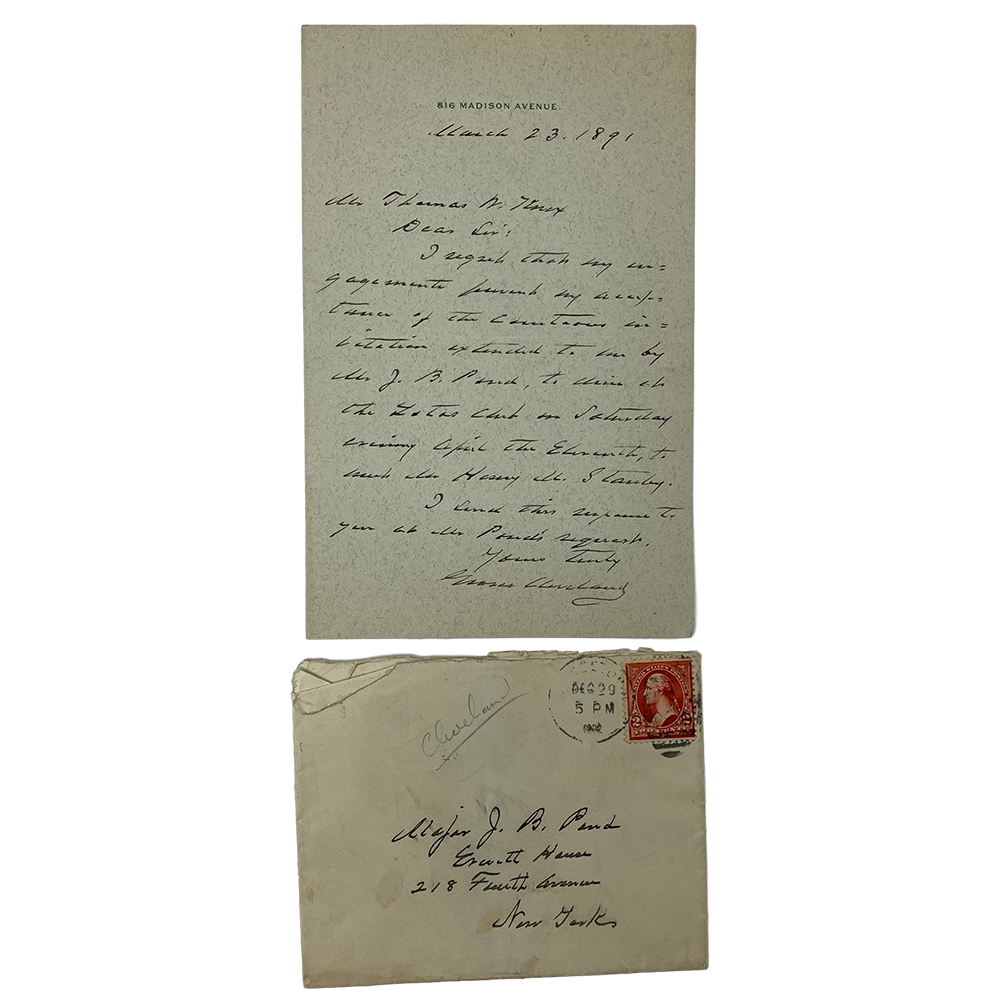 816 MADISON AVENUE.
March 23. 1891
Mr Thomas W. Knox
Dear Sir:
I regret that my en=
gagements prevent my accep-
tance of the courteous in=
vitation extended to me by
Mr J. B. Pond, to dine at
the Lotos Club on Saturday
evening April the Eleventh, to
meet Mr Henry M. Stanley.
I send this response to
you at Mr Pond's request.
Yours truly
Grover Cleveland
Cleveland
DEC 29
5 PM
2 2
Major J. B. Pond
Everett House
218 Fourth Avenue
New York